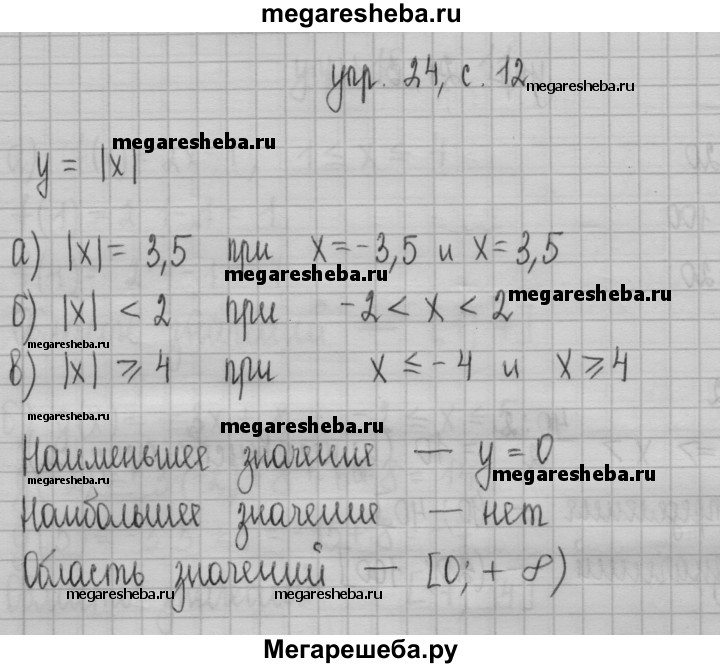 megaresheba.ru
упр. 24, с. 12
megaresheba.ru
megaresheba.ru
y = |x|
а) |x| = 3,5 при x = -3,5 и x = 3,5
megaresheba.ru
megaresheba.ru
б) |x| < 2 при -2 < x < 2
megaresheba.ru
в) |x| ⩾ 4 при x ≤ -4 и x ⩾ 4
megaresheba.ru
megaresheba.ru
Наименьшее значения — y = 0
megaresheba.ru
megaresheba.ru
Наибольшее значение — нет
megaresheba.ru
Область значений — [0; + ∞)
megaresheba.ru
megaresheba.ru
Мегарешеба.ру